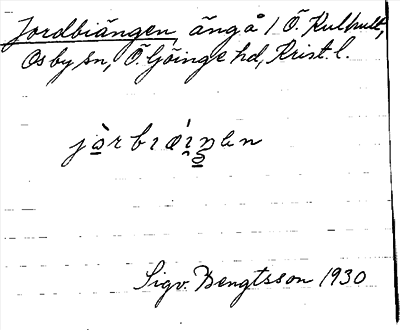 Jordbiängen, äng å 1 Ö. Kulhult,
Osby sn, Ö. Göinge hd, Krist. l.
Sigv. Bengtsson 1930